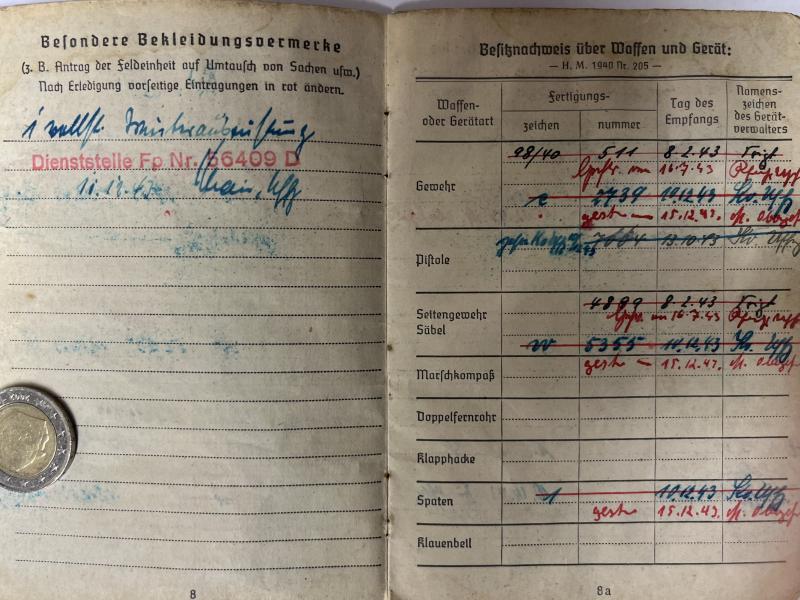 Besondere Bekleidungsvermerke
(z. B. Antrag der Feldeinheit auf Umtausch von Sachen usw.)
Nach Erledigung vorseitige Eintragungen in rot ändern.
1 vollst. Winterausrüstung
Dienststelle Fp Nr. 56409 D
11.12.43 Uffz
8
Besitznachweis über Waffen und Gerät:
— H. M. 1940 Nr. 205 —
Waffen- oder Gerätart
Fertigungs-
zeichen
nummer
Tag des Empfangs
Namenszeichen des Gerätverwalters
98/40 511 8.2.43
16.7.43
Gewehr
e 2739 10.12.43 Uffz
gestr 15.12.43.
Pistole
7664 13.10.43 Uffz
4899 8.2.43
Seitengewehr
16.7.43
Säbel
5355 10.12.43 Uffz
gestr 15.12.43.
Marschkompaß
Doppelfernrohr
Klapphacke
Spaten 1 10.12.43 Uffz
gestr 15.12.43.
Klauenbeil
8a